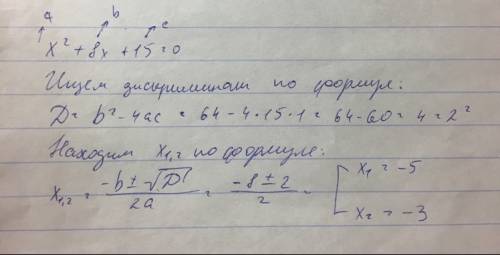 a b c
x² + 8x + 15 = 0
Ищем дискриминант по формуле:
D = b² - 4ac = 64 - 4·15·1 = 64 - 60 = 4 = 2²
Находим x₁,₂ по формуле:
x₁,₂ = (-b ± √D) / 2a = (-8 ± 2) / 2 = [ x₁ = -5
x₂ = -3